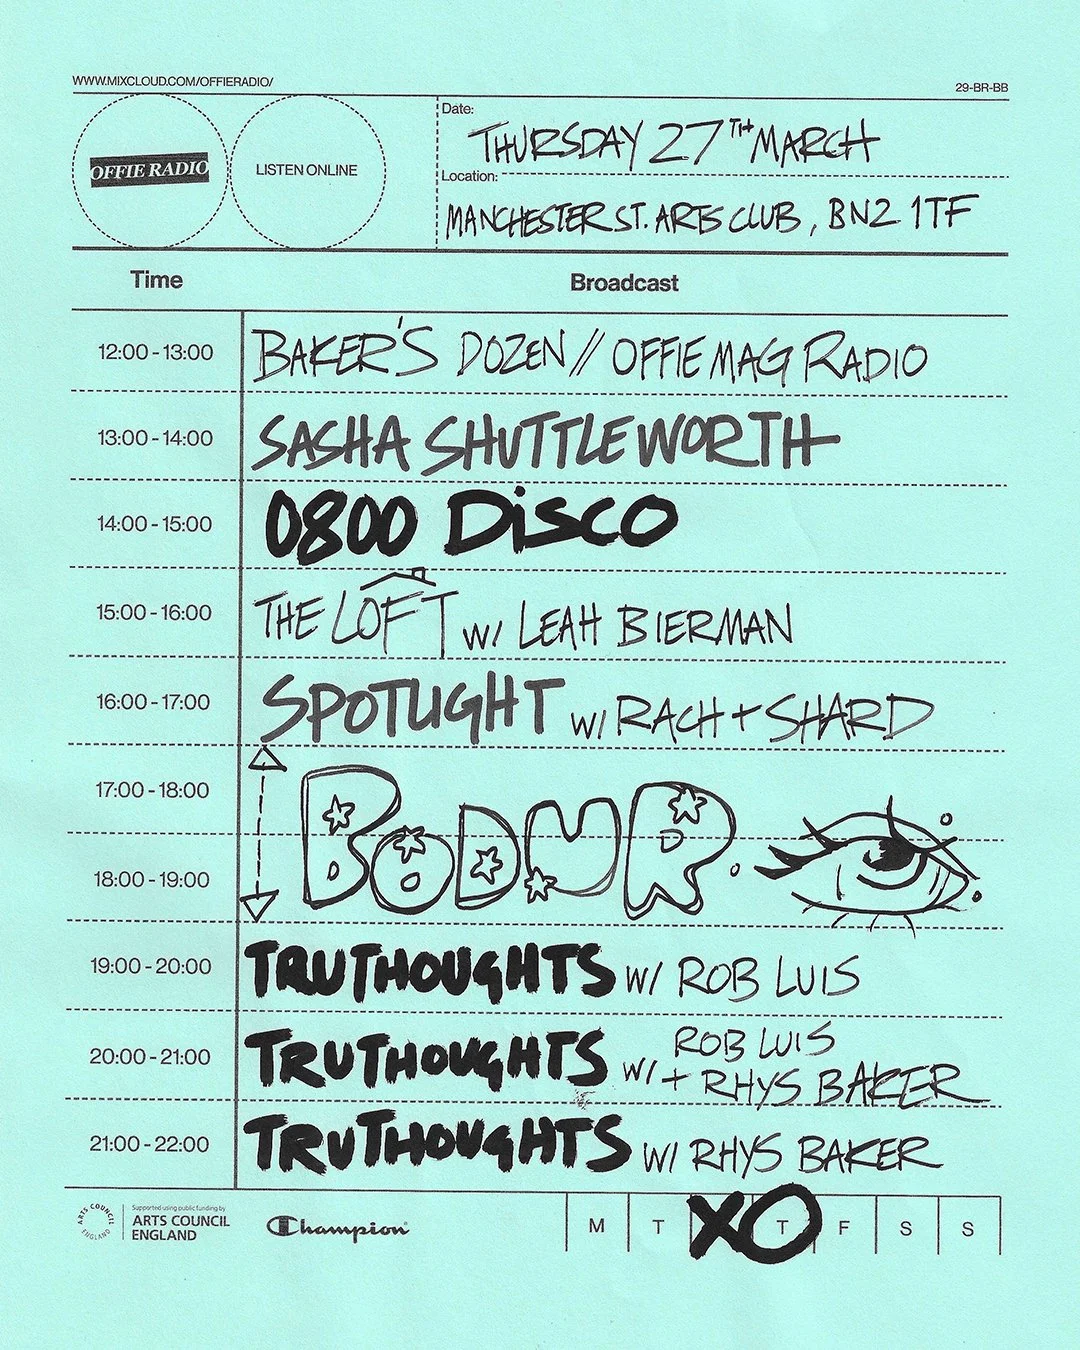 WWW.MIXCLOUD.COM/OFFIERADIO/
29-BR-BB
OFFIE RADIO
LISTEN ONLINE
Date:
THURSDAY 27TH MARCH
Location:
MANCHESTER ST. ARTS CLUB, BN2 1TF
Time Broadcast
12:00 - 13:00 BAKER'S DOZEN // OFFIE MAG RADIO
13:00 - 14:00 SASHA SHUTTLEWORTH
14:00 - 15:00 0800 DiSCO
15:00 - 16:00 THE LOFT W/ LEAH BIERMAN
16:00 - 17:00 SPOTLIGHT W/ RACH + SHARD
17:00 - 18:00
BODUR
18:00 - 19:00
19:00 - 20:00 TRUTHOUGHTS W/ ROB LUIS
20:00 - 21:00 TRUTHOUGHTS W/ ROB LUIS
+ RHYS BAKER
21:00 - 22:00 TRUTHOUGHTS W/ RHYS BAKER
ARTS COUNCIL ENGLAND
Supported using public funding by
ARTS COUNCIL
ENGLAND
Champion
M T XO T F S S